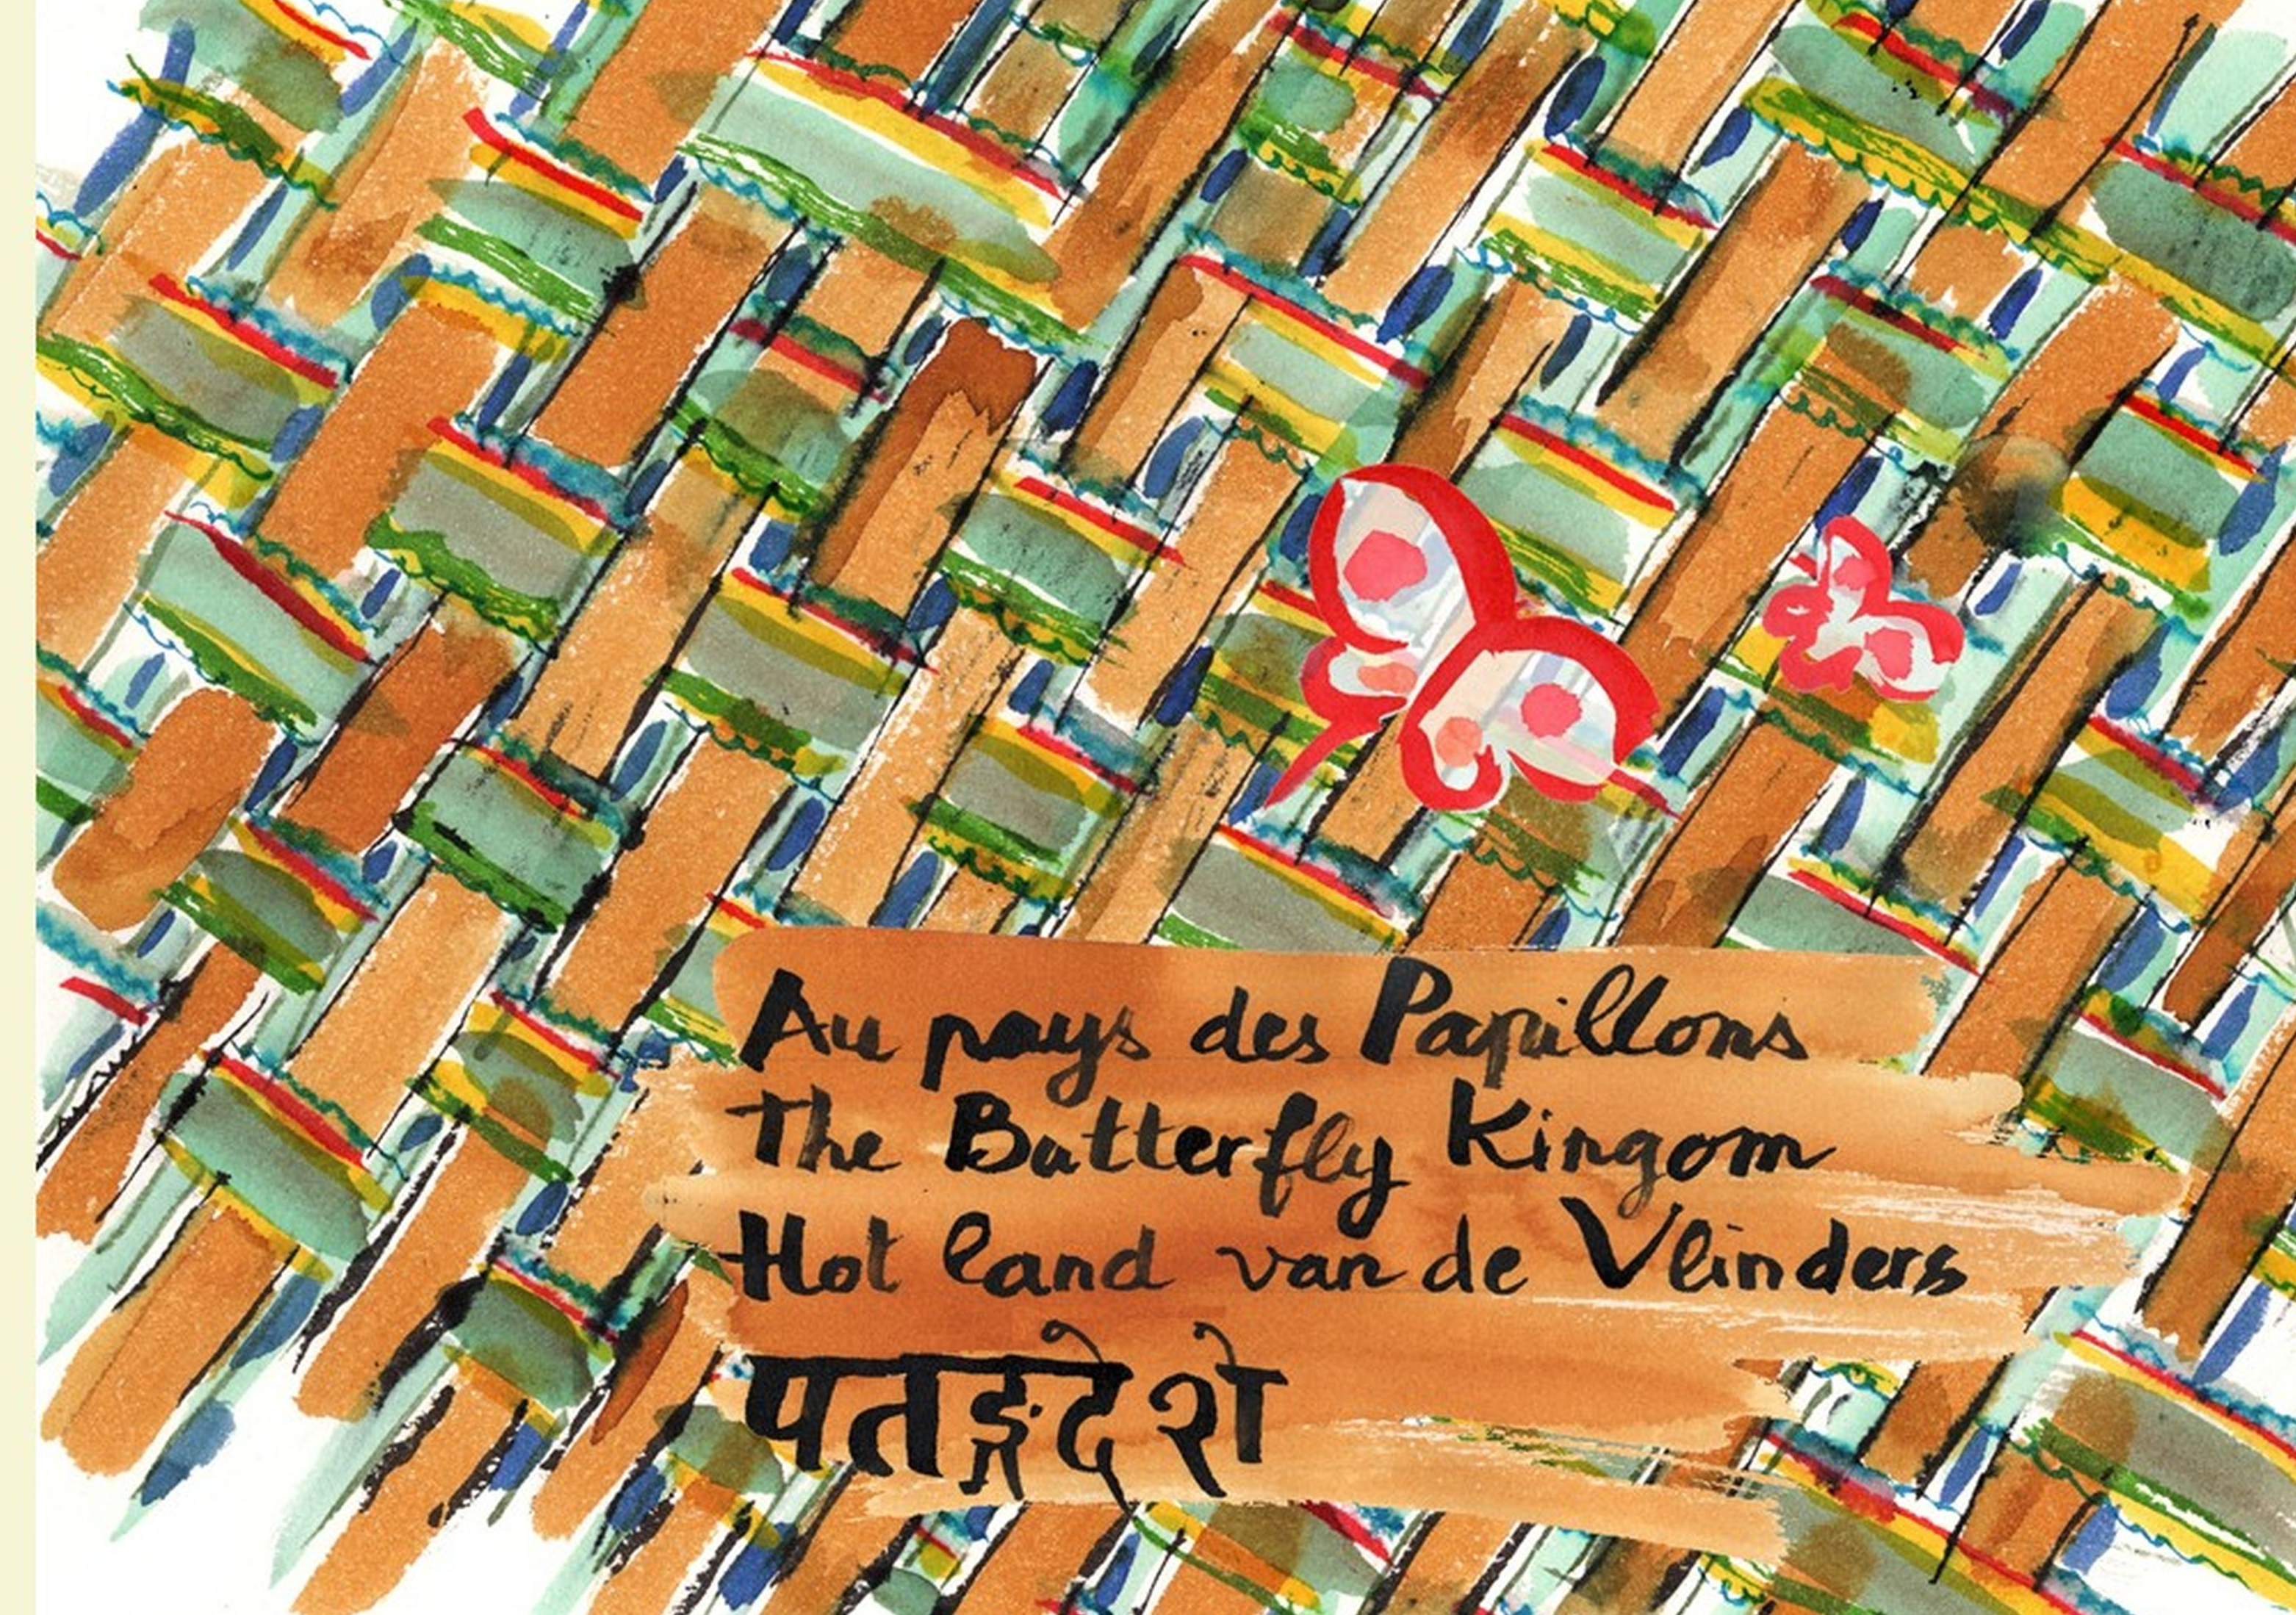 Au pays des Papillons
The Butterfly Kingom
Hot land van de Vlinders
पतङ्गदेशे